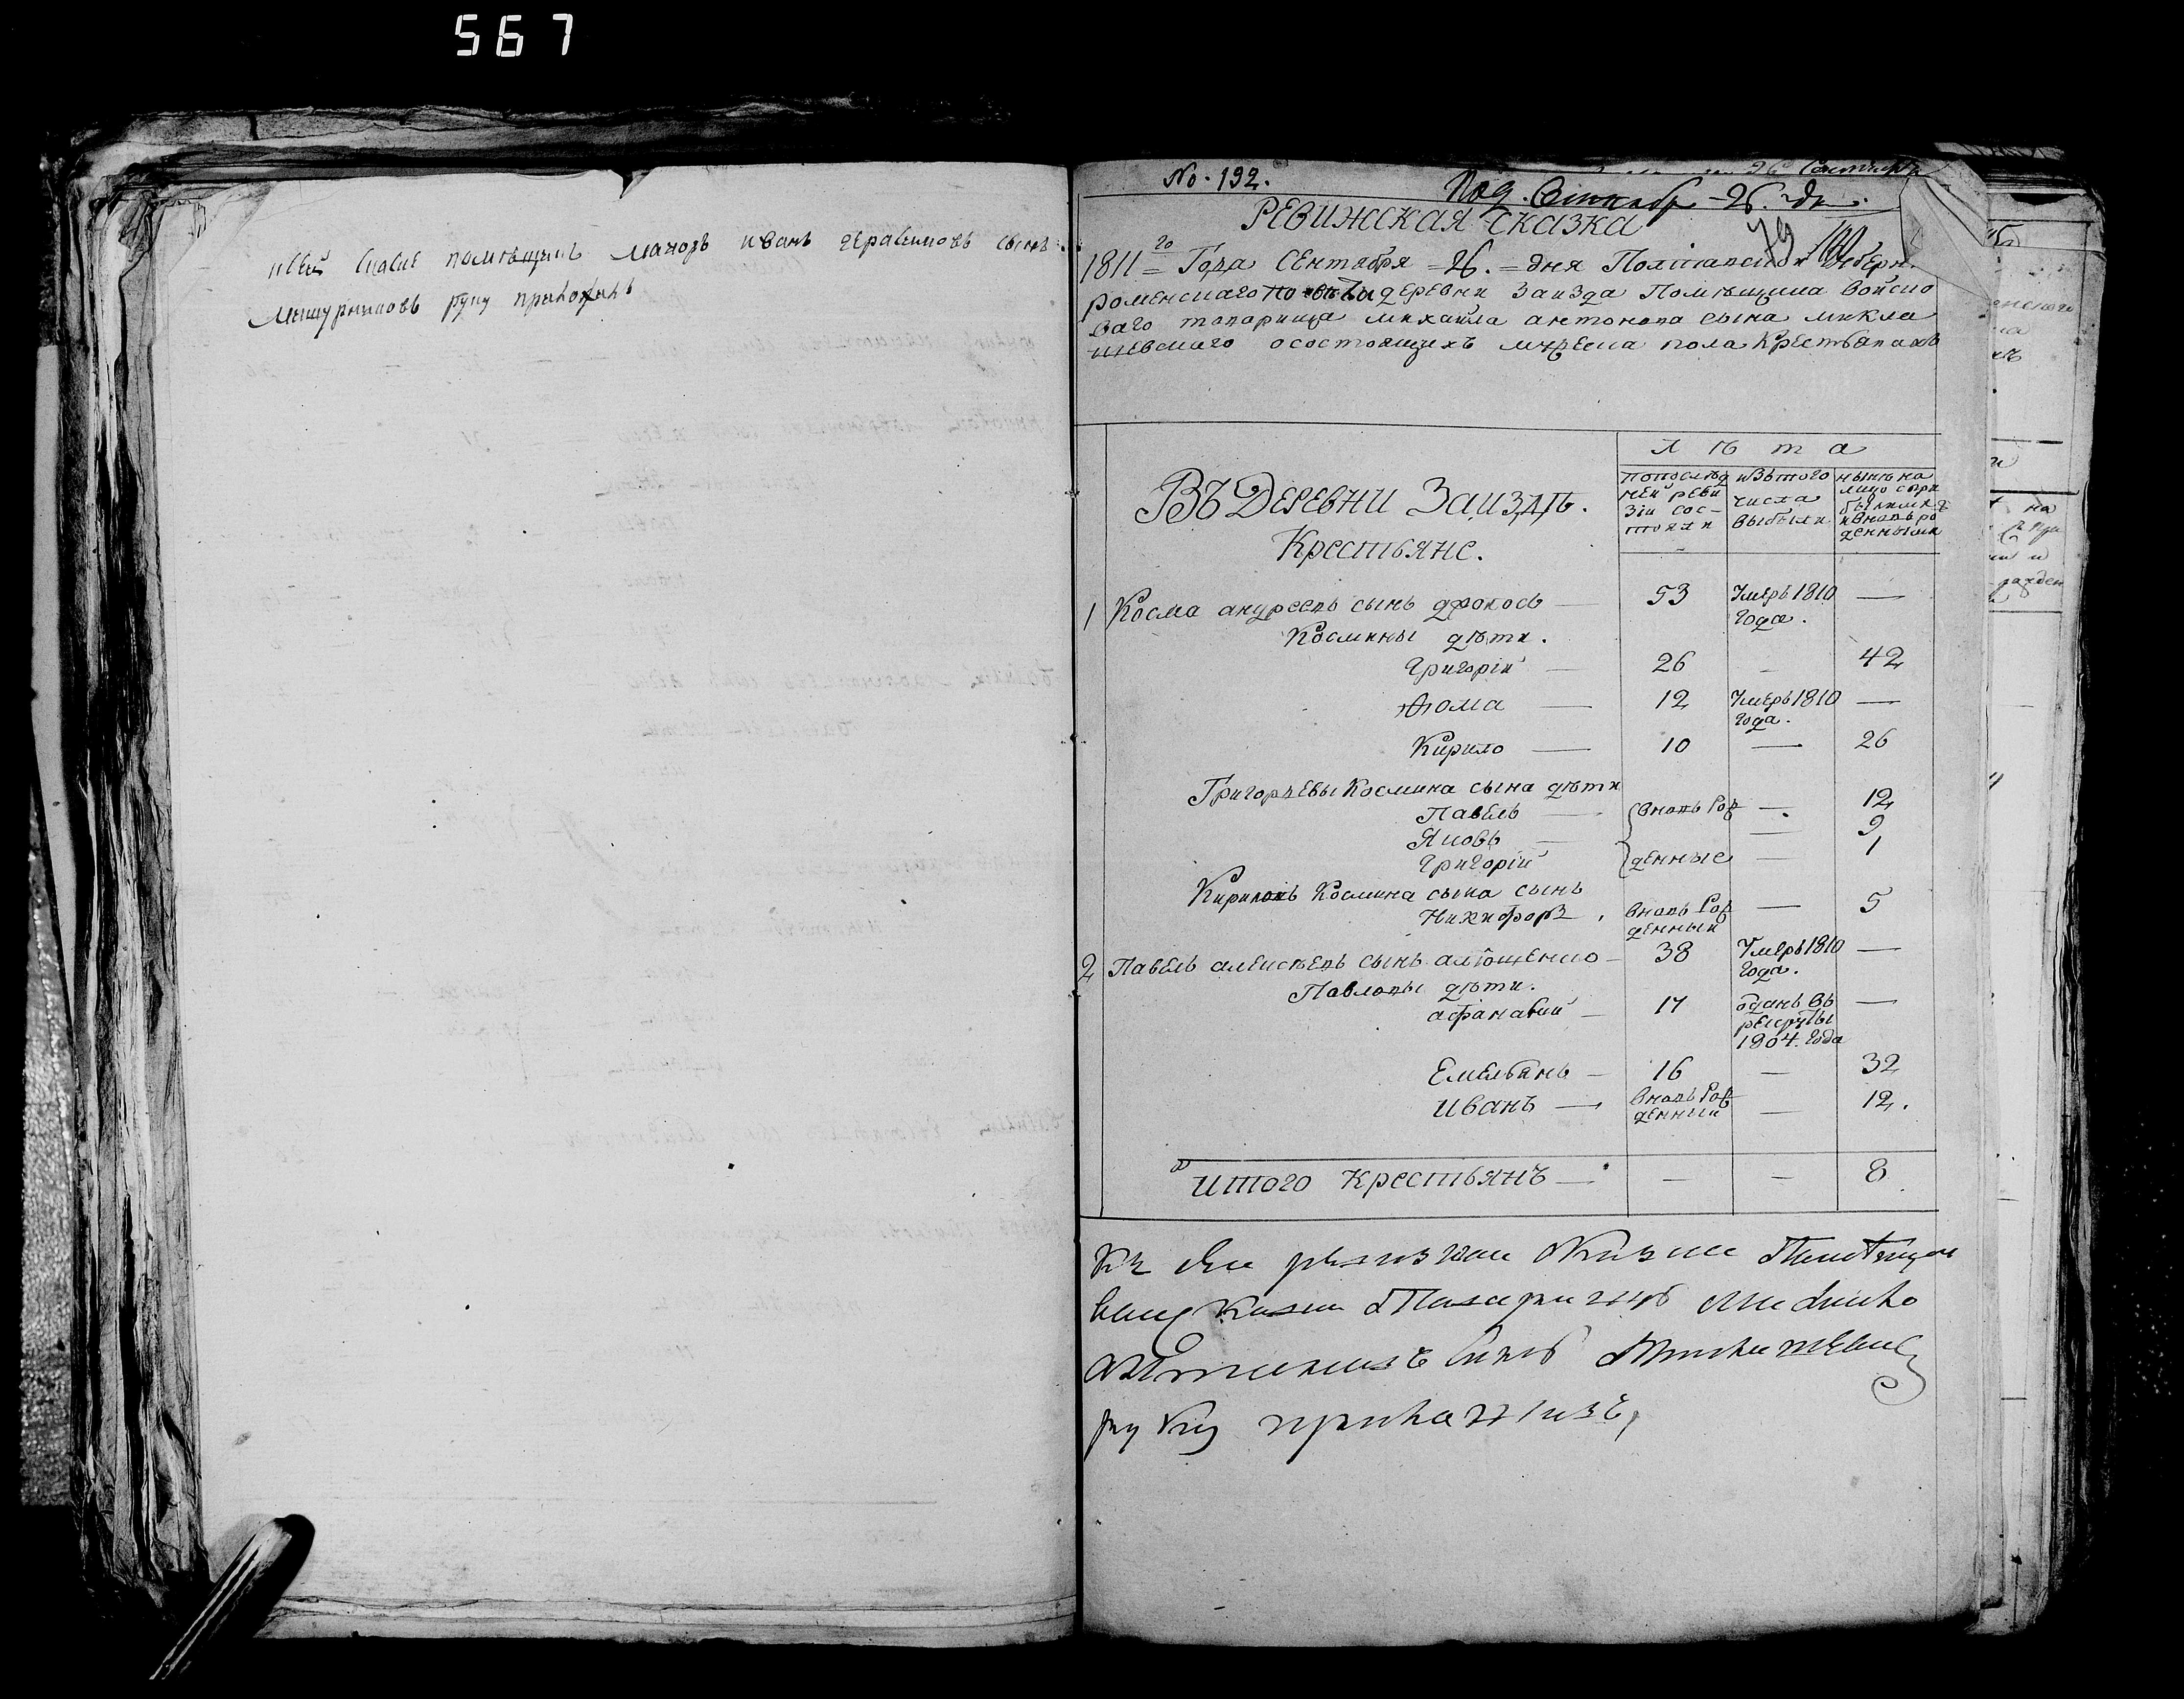 567
къ сей сказке помѣщикъ маиоръ иванъ герасимовъ сынъ
руку приложилъ
No. 192.
Под. Сентябр 26. дн.
79
РЕВИЖСКАЯ СКАЗКА
1811го Года Сентября 26. дня Полтавской Губерн.
роменскаго повѣта деревни Заизда Помѣщика Войско
ваго товарища михаила антонова сына микла
шевскаго о состоящихъ мужеска пола Крестьянахъ
Лѣта
ВЪ ДЕРЕВНИ Заиздѣ.
Крестьяне.
по послѣд
ней реви
зіи сос-
тояли
изъ того
числа
выбыли
нынѣ на
лицо
1 Косма андреевъ сынъ 53 Умеръ 1810 —
Года.
Космины дѣти.
Григорій — 26 — 42
Ѳома — 12 Умеръ 1810 —
Года.
Кирило — 10 — 26
Григорьевы Космина сына дѣти
Павелъ — вновь рож — 12
Яковъ — — 9
Григорій денные — 1
Кириловъ Космина сына сынъ
Никифоръ вновь рож — 5
денный
2 Павелъ алексѣевъ сынъ — 38 Умеръ 1810 —
Года.
Павловы дѣти.
афанасий — 17 отданъ въ —
рекруты
1804. Года
Емельянъ — 16 — 32
Иванъ — вновь рож — 12.
денний
Итого Крестьянъ — — — 8
Къ сей сказки
антоновъ синъ
руку приложивъ